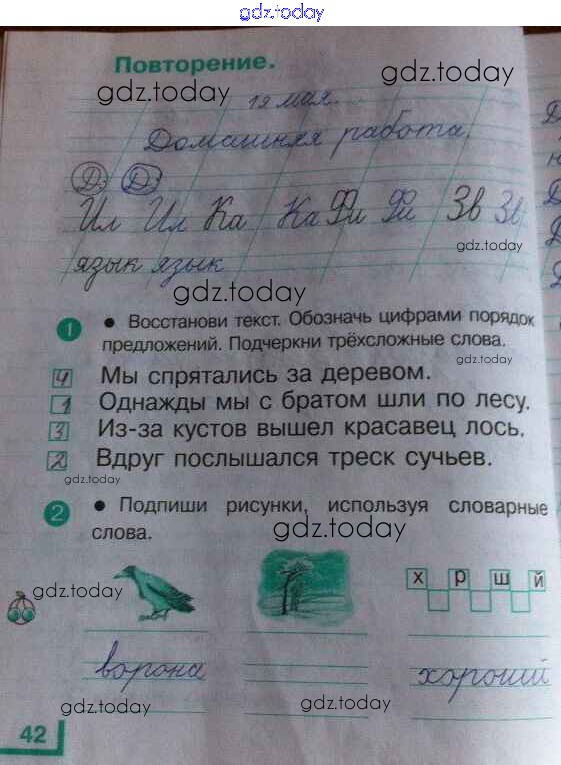 gdz.today
Повторение.
gdz.today gdz.today
19 мая.
Домашняя работа.
Д Д
Ил Ил Ка Ка Фи Фи Зв Зв
gdz.today
язык язык
gdz.today
1 • Восстанови текст. Обозначь цифрами порядок
предложений. Подчеркни трёхсложные слова.
gdz.today
4 Мы спрятались за деревом.
1 Однажды мы с братом шли по лесу.
3 Из-за кустов вышел красавец лось.
2 Вдруг послышался треск сучьев.
gdz.today
2 • Подпиши рисунки, используя словарные
слова.
gdz.today
х р ш й
gdz.today
ворона хороший
gdz.today gdz.today
42